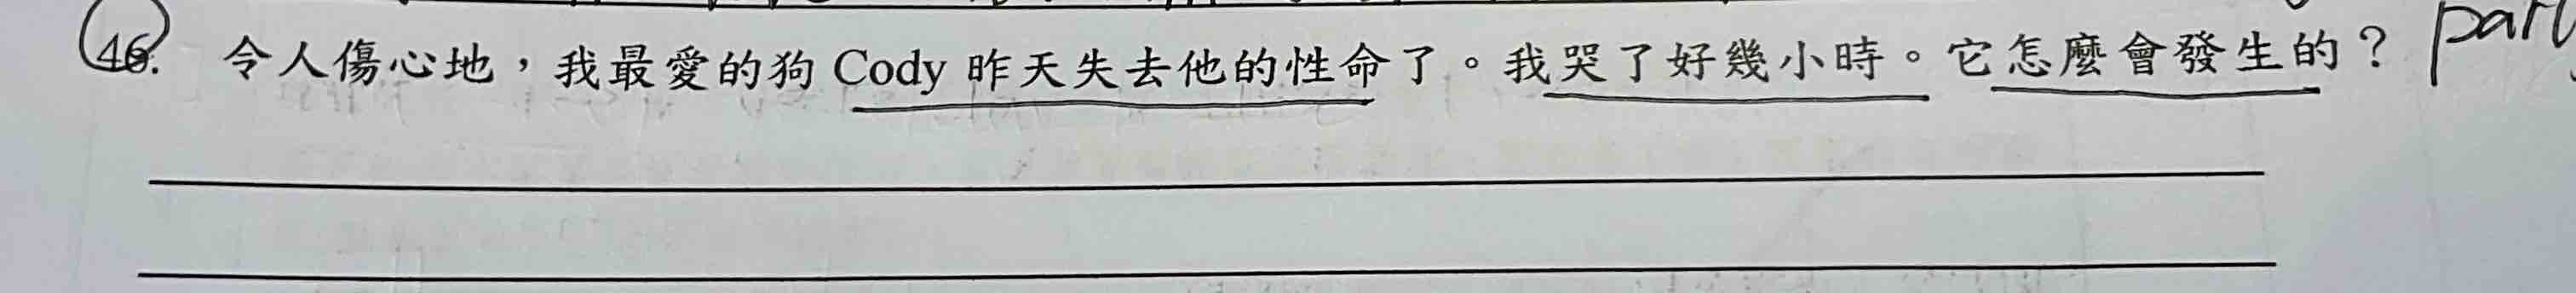 46. 令人傷心地，我最愛的狗 Cody 昨天失去他的性命了。我哭了好幾小時。它怎麼會發生的？